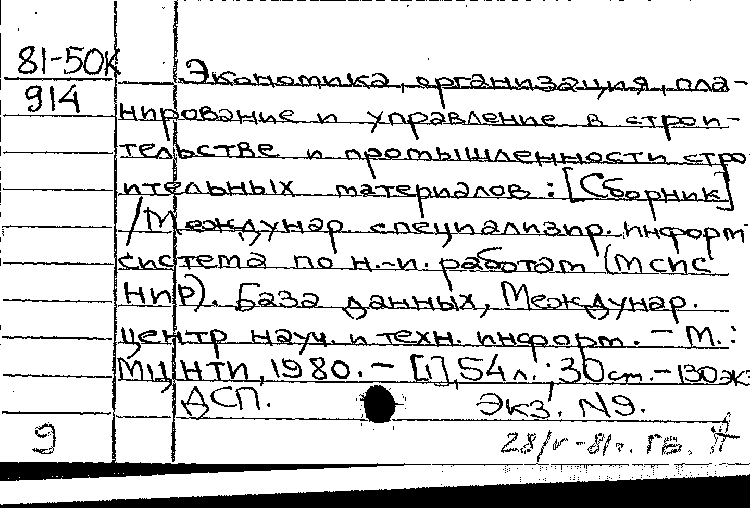 81-50К
914
Экономика, организация, пла-
нирование и управление в строи-
тельстве и промышленности стро
ительных материалов: [Сборник]
/Междунар специализир. информ
система по н.-и. работам (МСИС
НИР). База данных, Междунар.
центр науч. и техн. информ. – М.:
МЦНТИ, 1980. – [1], 54 л.; 30 см. – 130 экз
ДСП. Экз. N9.
9
28/V-81г. ГВ.